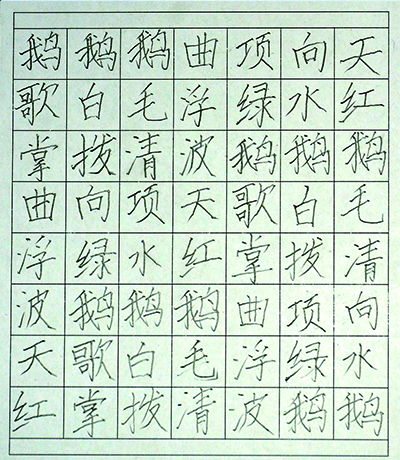 鹅鹅鹅曲项向天
歌白毛浮绿水红
掌拨清波鹅鹅鹅
曲向项天歌白毛
浮绿水红掌拨清
波鹅鹅鹅曲项向
天歌白毛浮绿水
红掌拨清波鹅鹅